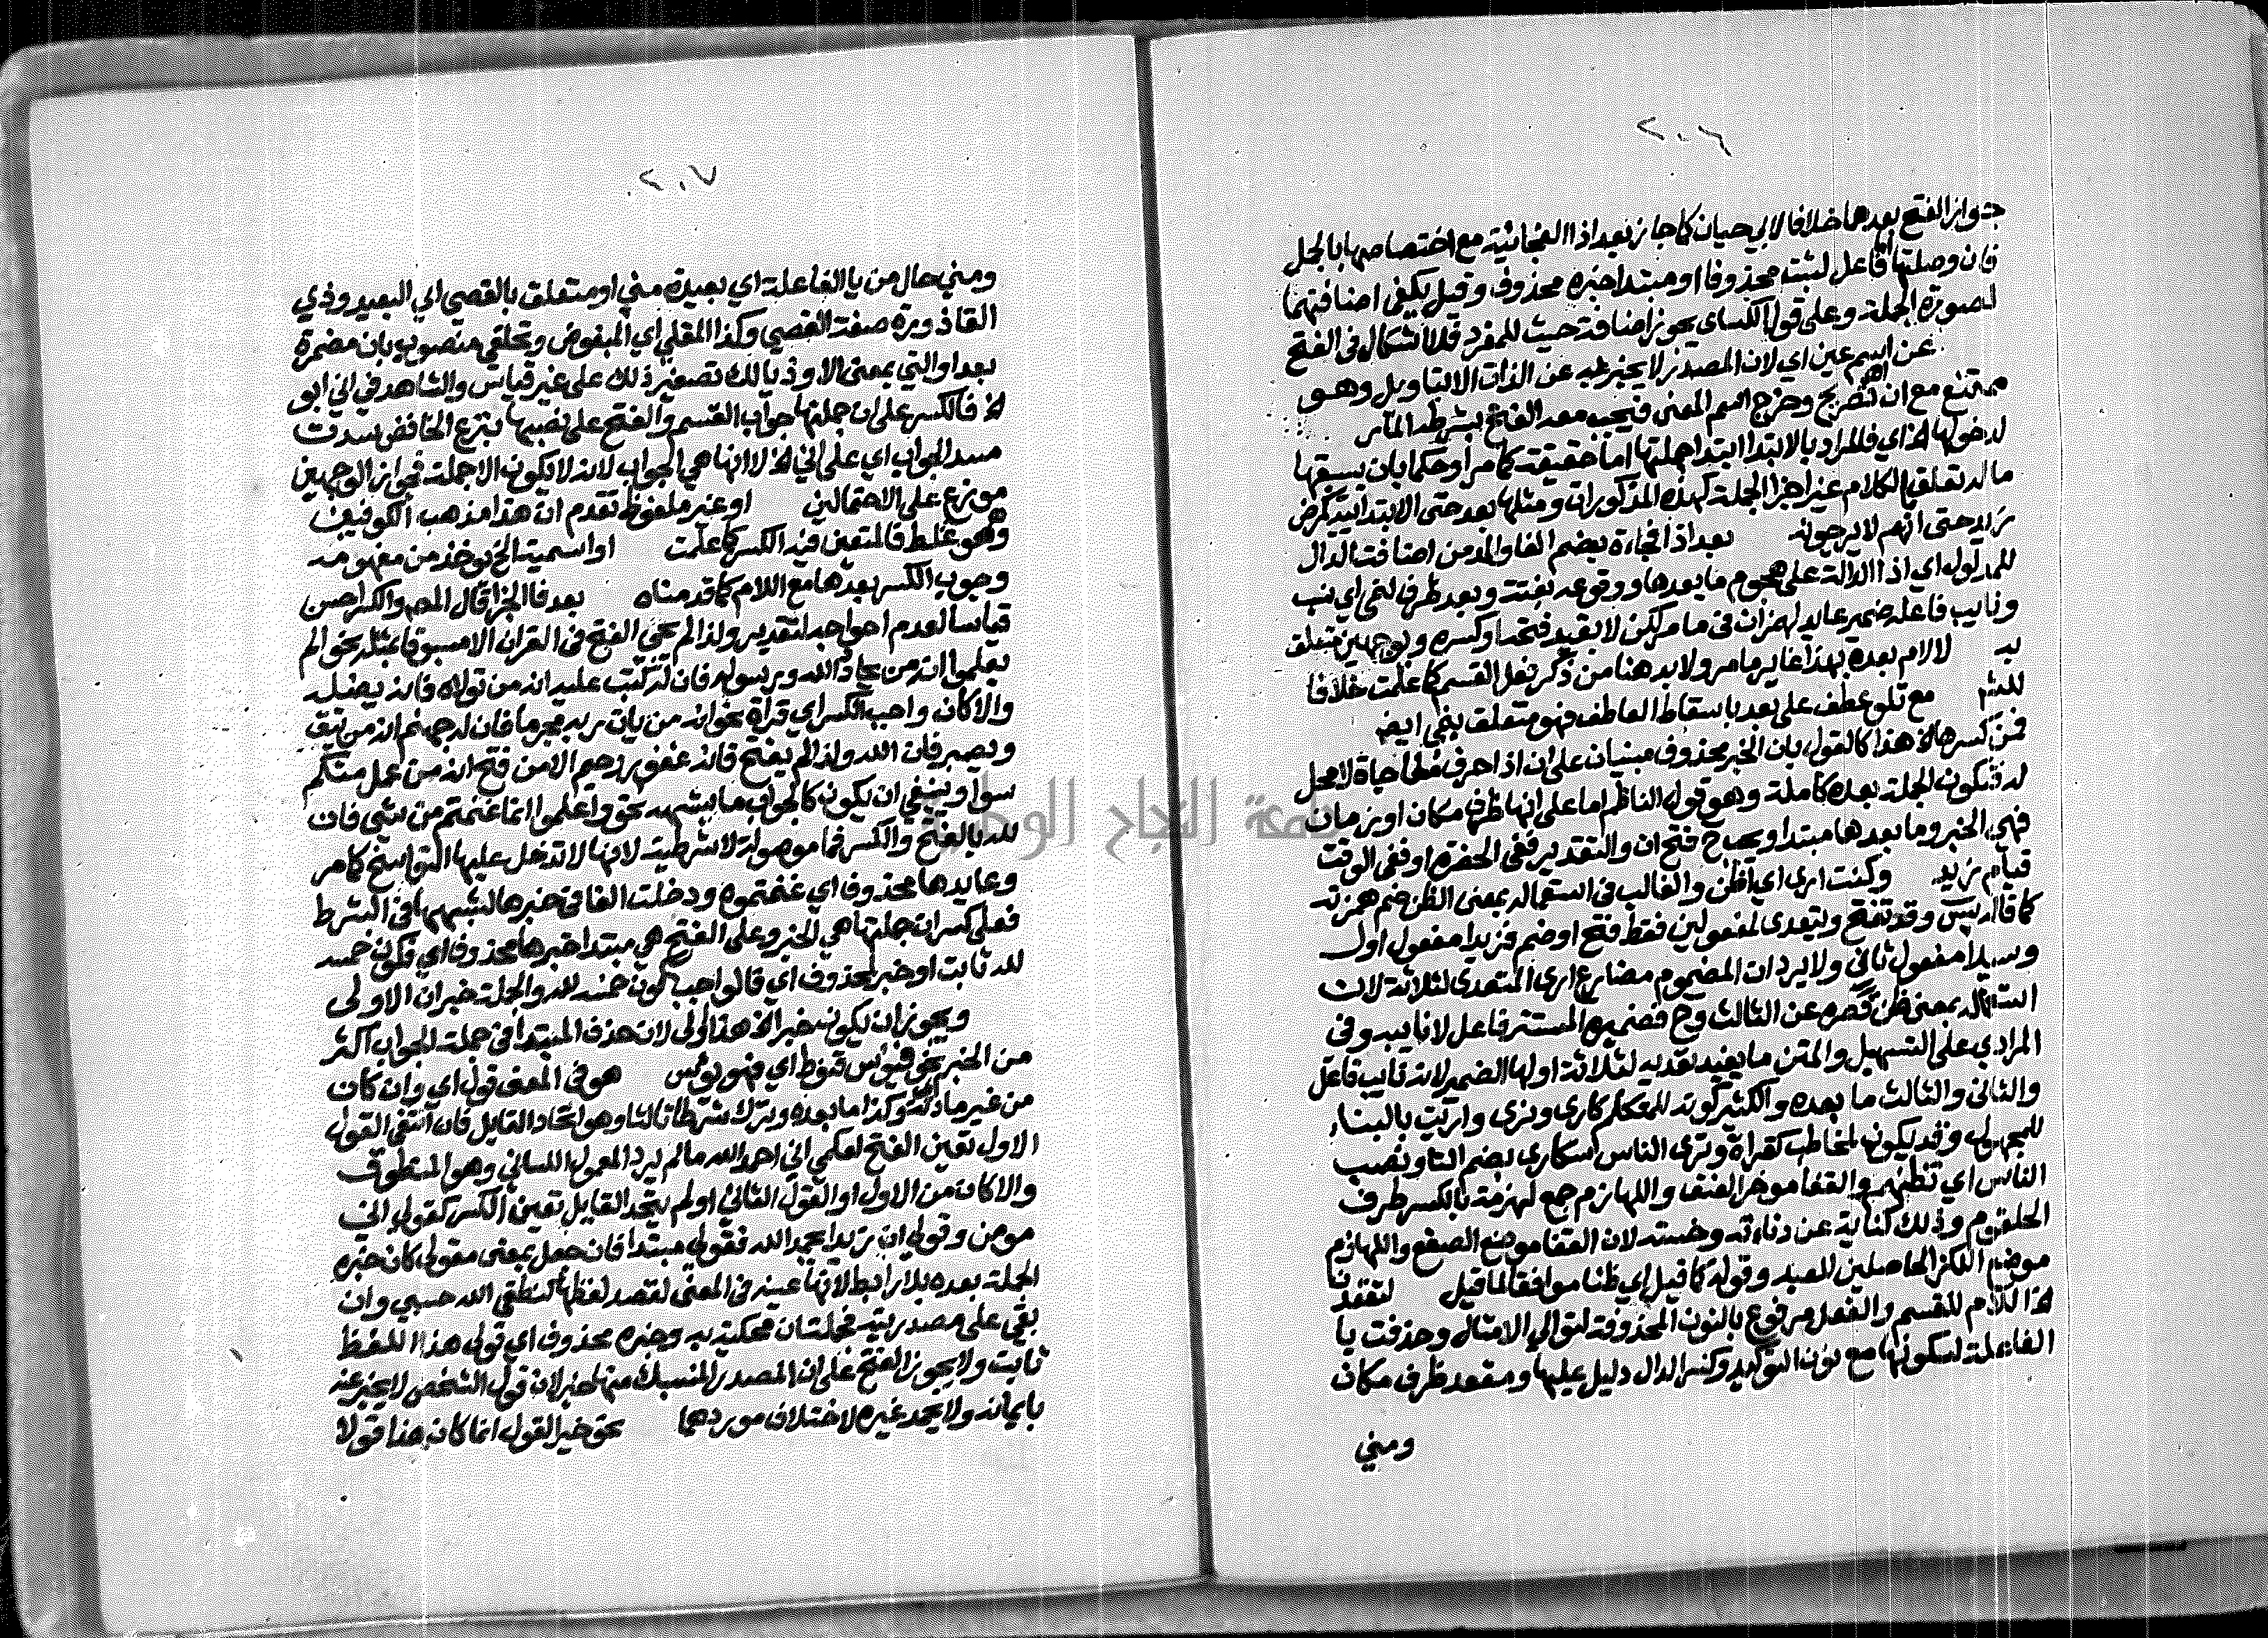 ٢٠٦
جواز الفتح بعدها خلافا لابي حيان كما جاز بعد اذا الفجائية مع اختصاصها بالجمل
فان وصلتها فاعل لثبت محذوفا او مبتدا خبره محذوف وقيل يكفي اضافتها
لصورة الجملة وعلى قول الكساى يجوز اضافة حيث للمفرد فلا اشكال فى الفتح
عن اسم عين اي لان المصدر لا يخبر به عن الذات الا بتاويل وهو
ممتنع مع ان اهـ تصريح وخرج اسم المعنى فيجب معه الفتح بشرطه المار
لدخولها الخ اي فالمراد بالابتدا ابتدا جملتها اما حقيقة كما مر او حكما بان يسبقها
ماله تعلق بالكلام غير اجزا الجملة كهذه المذكورات ومثلها بعد حتى الابتدائية كمرض
زيد حتى انهم لا يرجونه بعد اذا فجاءة بضم الفا والمد من اضافة الدال
للمدلول اي اذا الدالة على هجوم ما بعدها ووقوعه بغتة وبعد ظرف لنمى اي نسب
ونايب فاعله ضمير عايد لهمز ان فى ما مر لكن لا بقيد فتحه او كسره وبوجهين متعلق
به لا لام بعده بهذا غاير ما مر ولا بد هنا من ذكر فعل القسم كما علمت خلافا
للشم مع تلو عطف على بعد باسقاط العاطف فهو متعلق بنمي ايضا
فمن كسرها الخ هذا كالقول بان الخبر محذوف مبنيان على ان اذا حرف مفاجاة لا محل
له فتكون الجملة بعده كاملة وهو قول الناظم اما على انها ظرف مكان او زمان
فهي الخبر وما بعدها مبتدا ويجب ح فتح ان والتقدير ففي الحضرة او ففي الوقت
قيام زيد وكنت ارى اي اظن والغالب فى استعماله بمعنى الظن ضم همزته
كما قاله يس وقد تفتح ويتعدى لمفعولين فقط فتح او ضم فزيدا مفعول اول
وسيدا مفعول ثاني ولا يرد ان المضموم مضارع ارى المتعدى لثلاثة لان
استعماله بمعنى ظن قصره عن الثالث وح فضميره المستتر فاعل لا نايبه وفى
المرادي على التسهيل والمتن ما يفيد تعديه لثلاثة اولها الضمير لانه نايب فاعل
والثانى والثالث ما بعده والكثير كونه للمتكلم كارى ونرى واريت بالبناء
للمجهول وقد يكون لمخاطب كقراءة وترى الناس سكارى بضم التا ونصب
الناس اي تظنهم والقفا موخر العنق واللهازم جمع لهزمة بالكسر طرف
الحلقوم وذلك كناية عن دناءته وخسته لان القفا موضع الصفع واللهازم
موضع اللكز الحاصلين للعبد وقوله كما قيل اي ظنا موافقا لما قيل لتقعدن
الخ اللام للقسم والفعل مرفوع بالنون المحذوفة لتوالي الامثال وحذفت يا
الفاعلة لسكونها مع نون التوكيد وكسر الدال دليل عليها ومقعد ظرف مكان
ومني
٢٠٧
ومني حال من يا الفاعلة اي بعيدة مني او متعلق بالقصي اي البعيد وذي
القاذورة صفة القصي وكذا المقلي اي المبغوض وتحلفي منصوب بان مضمرة
بعد او التي بمعنى الا وذيالك تصغير ذلك على غير قياس والشاهد في اني ابو
الخ فالكسر على ان جملتها جواب القسم والفتح على نصبها بنزع الخافض سدت
مسد الجواب اي على اني الخ لا انها هي الجواب لانه لا يكون الا جملة فجواز الوجهين
موزع على الاحتمالين او غير ملفوظ تقدم ان هذا مذهب الكوفيين
وهو غلط فالمتعين فيه الكسر كما علمت او اسمية الخ يوخذ من مفهومه
وجوب الكسر بعدها مع اللام كما قدمناه بعد فا الجزا قال المص والكسر احسن
قياسا لعدم احواجه لتقدير ولذا لم يجئ الفتح فى القران الا مسبوقا بمثله نحو الم
يعلموا انه من يحادد الله ورسوله فان له كتب عليه انه من تولاه فانه يضله
والا كان واجب الكسر اي قراة نحو انه من يات ربه مجرما فان له جهنم انه من يتق
ويصبر فان الله ولذا لم يفتح فانه غفور رحيم الا من فتح انه من عمل منكم
سوا وينبغي ان يكون كالجواب ما يشبهه نحو واعلموا انما غنمتم من شي فان
لله بالفتح والكسر فما موصولة لا شرطية لانها لا تدخل عليها النواسخ كما مر
وعايدها محذوف اي غنمتموه ودخلت الفا فى خبرها لشبهها فى الشرط
فعلى كسر ان جملتها هي الخبر وعلى الفتح هي مبتدا خبرها محذوف اي فكون خمسه
لله ثابت او خبر لمحذوف اي فالواجب كون خمسه لله والجملة خبر ان الاولى
ويجوز ان يكون خبرا الخ هذا اولى لان حذف المبتدا فى جملة الجواب اكثر
من الخبر نحو فيوس قنوط اي فهو يوس هو فى المعنى قول اي وان كان
من غير مادته وكذا ما بعده وترك شرطا ثالثا وهو اتحاد القايل فان انتفى القول
الاول تعين الفتح لعكمي اني احمد الله ما لم يرد المعمول اللساني وهو المنطوق
والا كان من الاول او القول الثاني او لم يتحد القايل تعين الكسر كقولي اني
مومن وقولي ان زيدا يحمد الله فقولي مبتدا فان جعل بمعنى مقولي كان خبره
الجملة بعده بلا رابط لانها عينه فى المعنى لقصد لفظها كنطقي الله حسبي وان
بقي على مصدريته فجملة ان محكية به وخبره محذوف اي قولي هذا اللفظ
ثابت ولا يجوز الفتح على ان المصدر المنسبك منها خبر لان قول الشخص لا يخبر عنه
بايمانه ولا بحمد غيره لاختلاف موردهما نحو خير القول انما كان هذا قولا